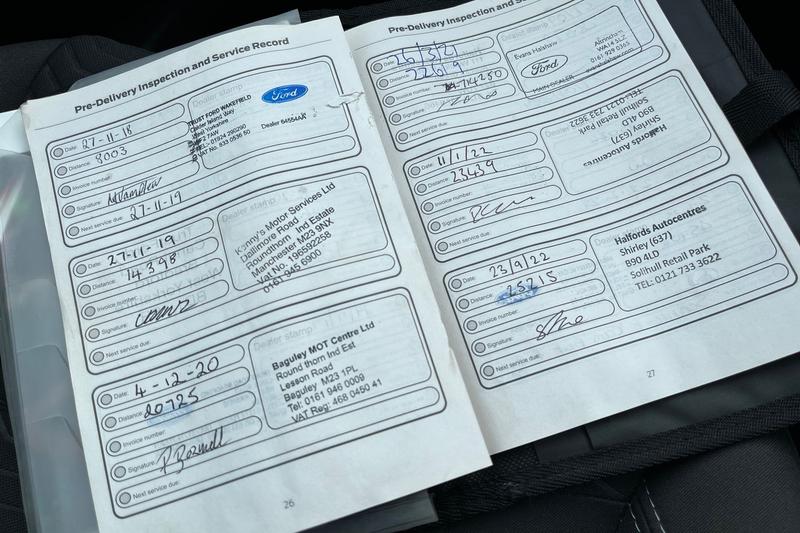 Pre-Delivery Inspection and Service Record
Date: 27-11-18
Distance: 8003
Invoice number:
Signature:
Next service due: 27-11-19
Dealer stamp
Ford
TRUST FORD WAKEFIELD
Calder Island Way
West Yorkshire
WF2 7AW
TEL: 01924 290290
VAT No. 833 0536 50
Date: 27-11-19
Distance: 14398
Invoice number:
Signature:
Next service due:
Dealer stamp
Kenny's Motor Services Ltd
Dallimore Road
Roundthorn Ind Estate
Manchester M23 9NX
Vat No. 196592258
0161 945 6900
Date: 4-12-20
Distance: 20725
Invoice number:
Signature:
Next service due:
Dealer stamp
Baguley MOT Centre Ltd
Round thorn Ind Est
Lesson Road
Baguley M23 1PL
Tel: 0161 946 0009
VAT Reg: 468 0450 41
26
Pre-Delivery Inspection and Service Record
Date:
Distance: 22619
Invoice number:
Signature:
Next service due:
Dealer stamp
Evans Halshaw
Ford
MAIN DEALER
Altrincham
WA14 5LZ
0161 929 0365
evanshalshaw.com
Date: 11/1/22
Distance: 23439
Invoice number:
Signature:
Next service due:
Halfords Autocentres
Shirley (637)
B90 4LD
Solihull Retail Park
TEL: 0121 733 3622
Date: 23/9/22
Distance: 25215
Invoice number:
Signature:
Next service due:
Halfords Autocentres
Shirley (637)
B90 4LD
Solihull Retail Park
TEL: 0121 733 3622
27